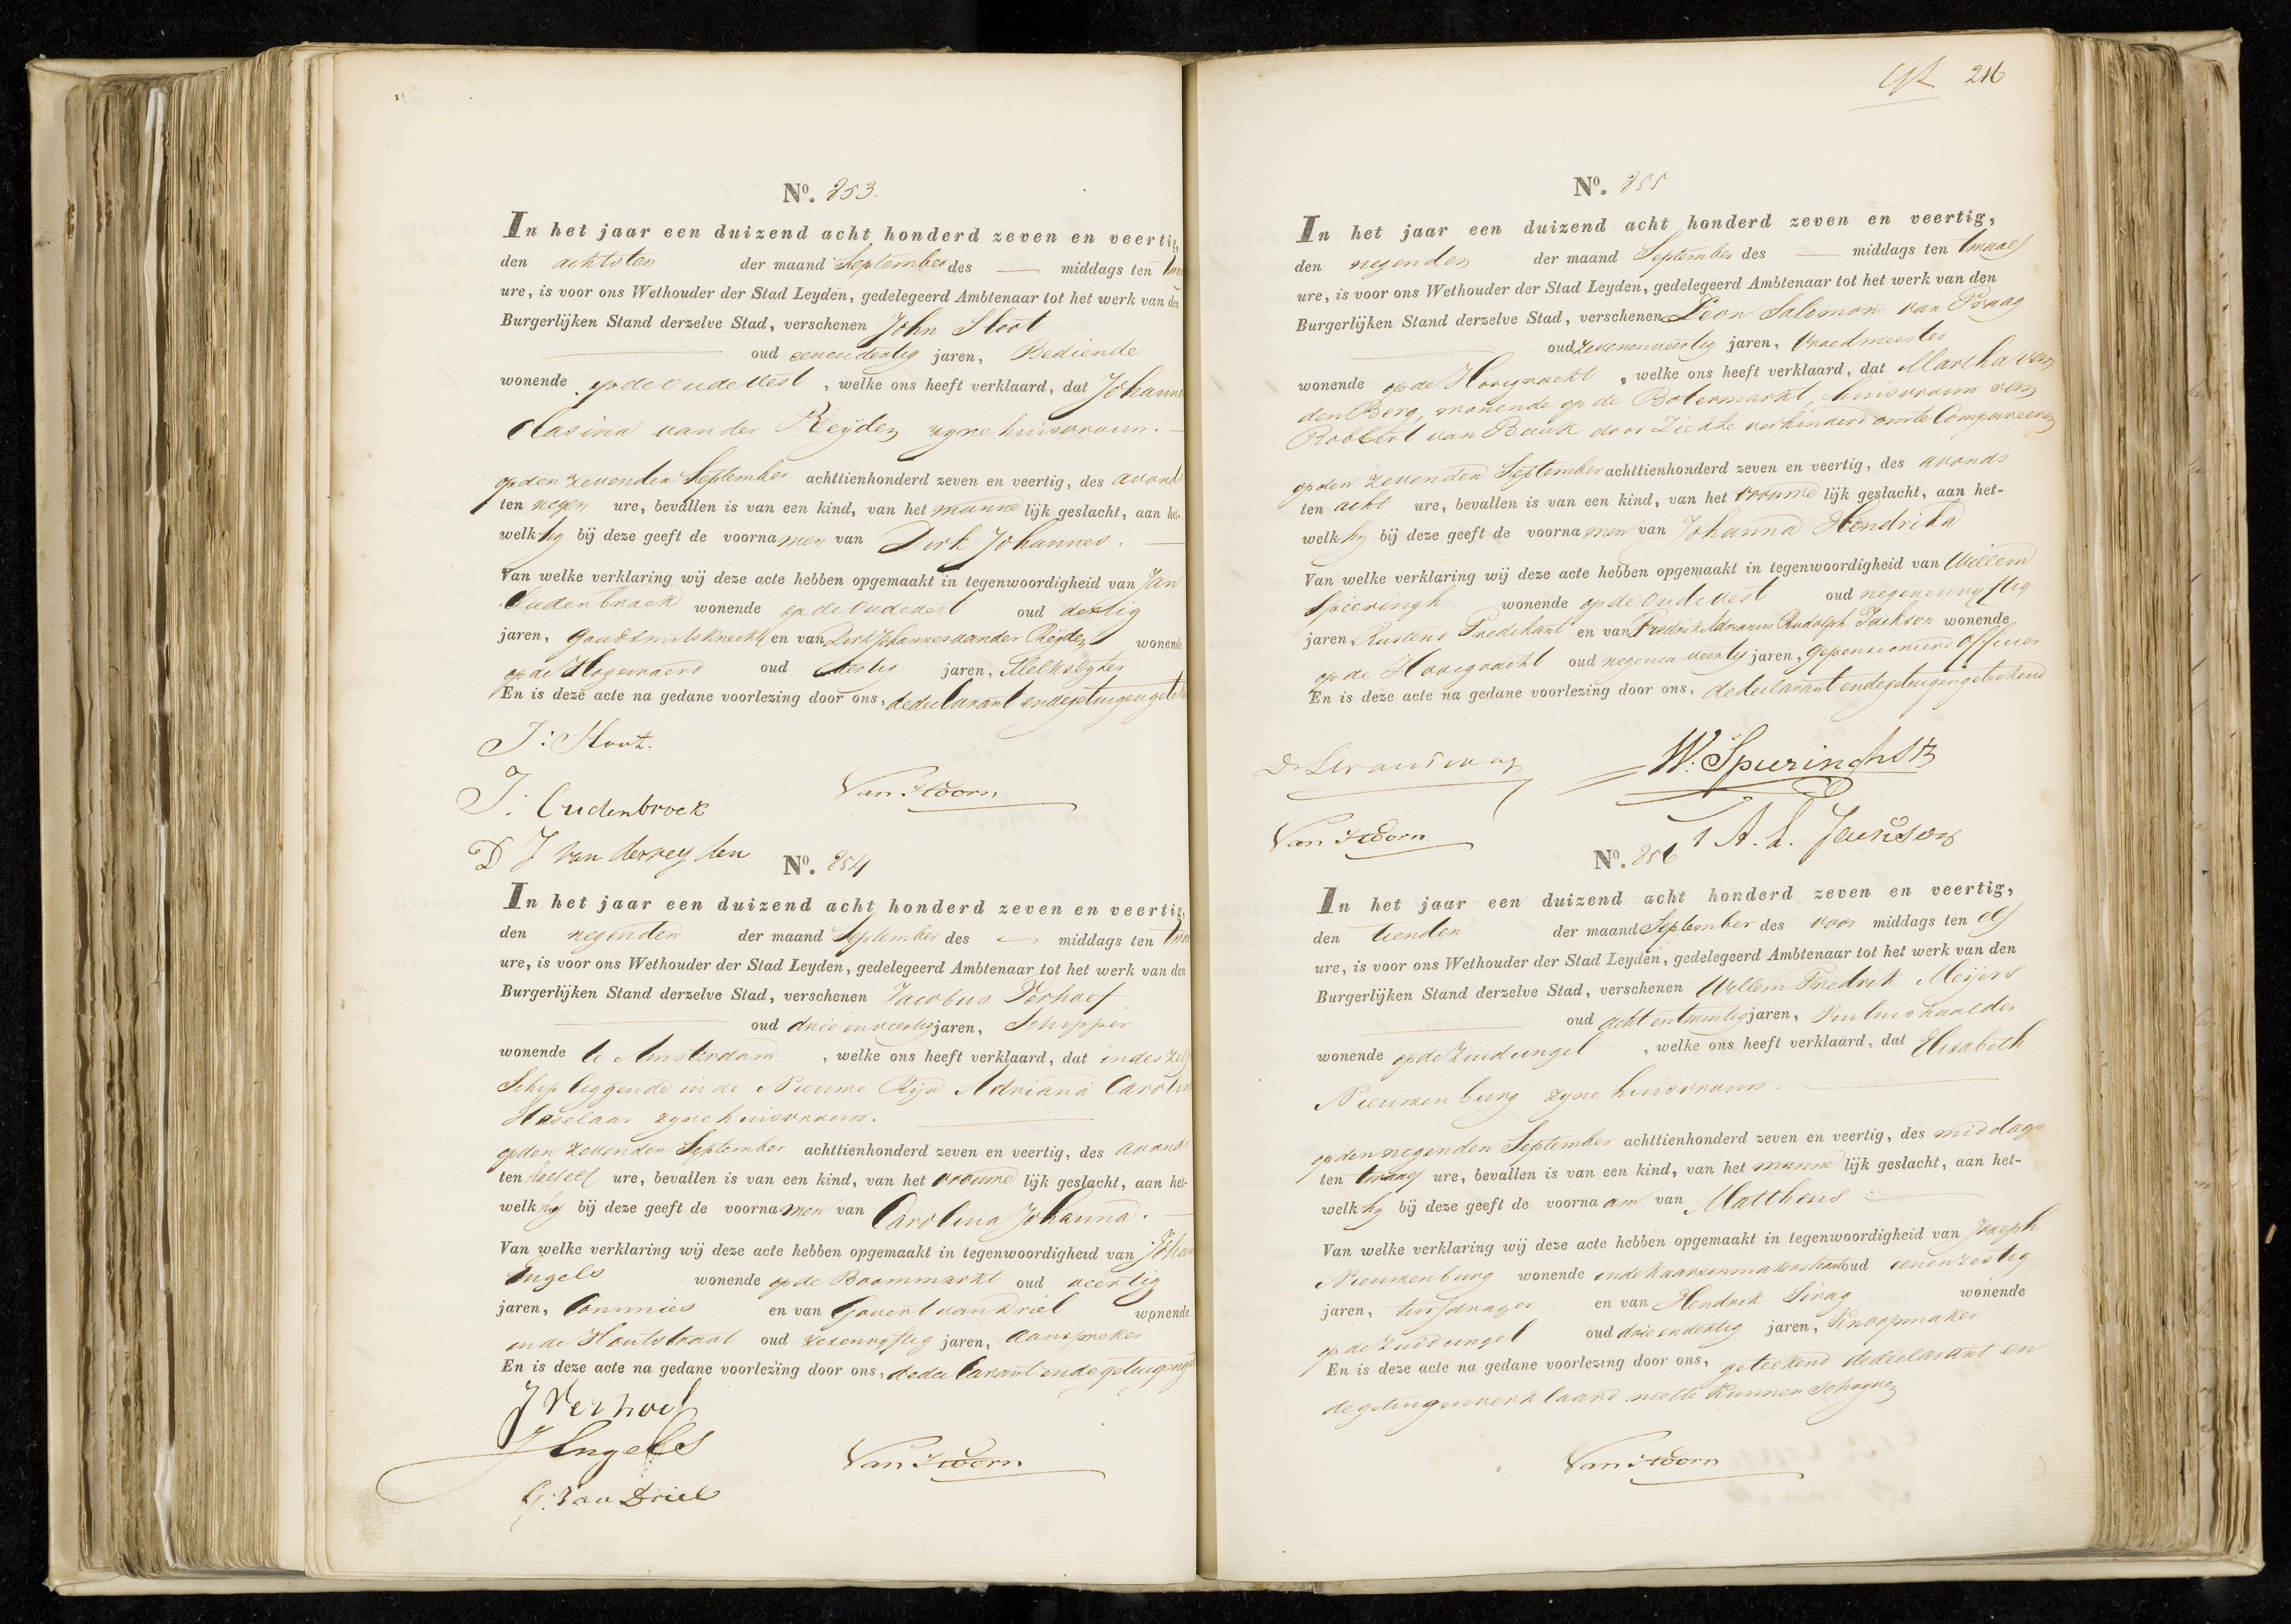 No. 853.
In het jaar een duizend acht honderd zeven en veertig,
den achtsten der maand September des — middags ten
ure, is voor ons Wethouder der Stad Leyden, gedelegeerd Ambtenaar tot het werk van den
Burgerlijken Stand derzelve Stad, verschenen John Sloot
oud eenendertig jaren, Bediende
wonende op de Oude Vest, welke ons heeft verklaard, dat Johanna
Clasina van der Reyden zyne huisvrouw.
op den zevenden September achttienhonderd zeven en veertig, des avonds
ten negen ure, bevallen is van een kind, van het manne lijk geslacht, aan het-
welk hy bij deze geeft de voorna men van Dirk Johannes.
Van welke verklaring wij deze acte hebben opgemaakt in tegenwoordigheid van Jan
Oudenbroek wonende op de Oudevest oud dertig
jaren, Goudsmidsknecht en van Dirk Johannes van der Reyden wonende
op de Hogewoerd oud dertig jaren, Melkslyter
En is deze acte na gedane voorlezing door ons, de declarant en de getuigen
J: Sloot.
J: Oudenbroek
Van Hoorn
D J van der reyden
No. 854
In het jaar een duizend acht honderd zeven en veertig,
den negenden der maand September des — middags ten
ure, is voor ons Wethouder der Stad Leyden, gedelegeerd Ambtenaar tot het werk van den
Burgerlijken Stand derzelve Stad, verschenen Jacobus Verhoef
oud drie en veertig jaren, Schipper
wonende te Amsterdam, welke ons heeft verklaard, dat in deszelfs
Schip leggende in de Nieuwe Rijn Adriana Carolina
Haselaar zyne huisvrouw.
op den zevenden September achttienhonderd zeven en veertig, des avonds
ten half elf ure, bevallen is van een kind, van het vrouwe lijk geslacht, aan het-
welk hy bij deze geeft de voorna men van Carolina Johanna.
Van welke verklaring wij deze acte hebben opgemaakt in tegenwoordigheid van Johan
Engels wonende op de Boommarkt oud veertig
jaren, Commies en van Govert van Driel wonende
in de Houtstraat oud zesenvyftig jaren, Aanspreker
En is deze acte na gedane voorlezing door ons, de declarant en de getuigen
J Verhoef
J Engels
Van Hoorn
G: van Driel
216
No. 855
In het jaar een duizend acht honderd zeven en veertig,
den negenden der maand September des — middags ten twaalf
ure, is voor ons Wethouder der Stad Leyden, gedelegeerd Ambtenaar tot het werk van den
Burgerlijken Stand derzelve Stad, verschenen Leon Salomon van Praag
oud zevenenveertig jaren, Vroedmeester
wonende op de Hooigracht, welke ons heeft verklaard, dat Martha van
den Berg, wonende op de Botermarkt, huisvrouw van
Robbert van Baak door Ziekte verhinderd om te Compareeren
op den zevenden September achttienhonderd zeven en veertig, des avonds
ten acht ure, bevallen is van een kind, van het vrouwe lijk geslacht, aan het-
welk hy bij deze geeft de voorna men van Johanna Hendrika
Van welke verklaring wij deze acte hebben opgemaakt in tegenwoordigheid van Willem
Spieringh wonende op de Oude Vest oud negenenvyftig
jaren Rustend Predikant en van Fredrik Adrianus Rudolph Jackson wonende
op de Hooigracht oud negen en veertig jaren, gepensioneerd Officier
En is deze acte na gedane voorlezing door ons, de declarant en de getuigen geteekend
W. Spieringh
Van Hoorn
No. 856
In het jaar een duizend acht honderd zeven en veertig,
den tienden der maand September des voor middags ten elf
ure, is voor ons Wethouder der Stad Leyden, gedelegeerd Ambtenaar tot het werk van den
Burgerlijken Stand derzelve Stad, verschenen Willem Fredrik Meijers
oud acht en twintig jaren,
wonende op de Zuidsingel, welke ons heeft verklaard, dat Elisabeth
Nieuwenburg zyne huisvrouw.
op den negenden September achttienhonderd zeven en veertig, des middags
ten twaalf ure, bevallen is van een kind, van het manne lijk geslacht, aan het-
welk hy bij deze geeft de voorna am van Mattheus
Van welke verklaring wij deze acte hebben opgemaakt in tegenwoordigheid van Joseph
Nieuwenburg wonende in de Kaarsenmakerstraat oud eenenzestig
jaren, turfdrager en van Hendrik Sirag wonende
op de Zuidsingel oud drie en dertig jaren, Knoopmaker
En is deze acte na gedane voorlezing door ons, geteekend de declarant en
de getuigen verklaard niet te kunnen schryven
Van Hoorn